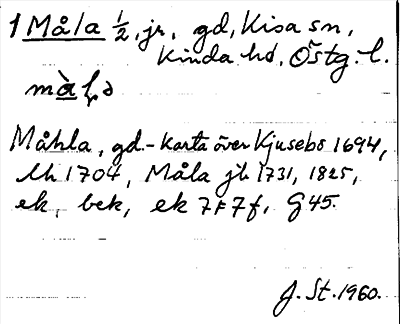 1 Måla ½, jr, gd, Kisa sn,
Kinda hd, Östg. l.
Måhla, gd.-karta över Kjusebo 1694,
Lh 1704, Måla jb 1731, 1825,
ek, bek, ek 7F7f, G45.
J. St. 1960.